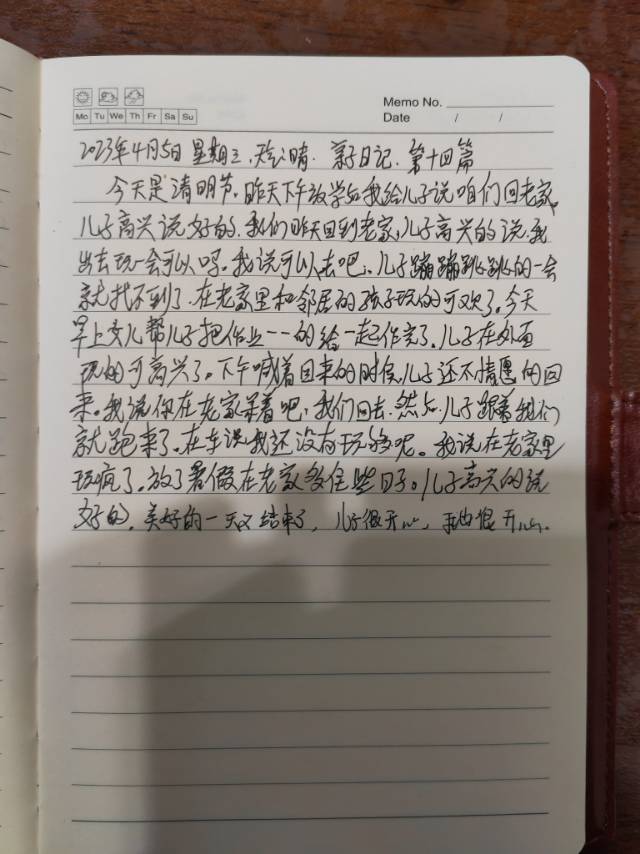 Memo No.
Mo Tu We Th Fr Sa Su
Date / /
2023年4月5日 星期三.天气晴. 亲子日记.第十四篇
今天是清明节.昨天下午放学后我给儿子说咱们回老家,
儿子高兴说好的.我们昨天回到老家,儿子高兴的说我
出去玩一会可以吗.我说可以去吧.儿子蹦蹦跳跳的一会
就找不到了.在老家里和邻居的孩子玩的可欢了.今天
早上女儿帮儿子把作业一一的给一起作完了.儿子在外面
玩的可高兴了。下午喊着回来的时候,儿子还不情愿的回
来。我说你在老家呆着吧,我们回去.然后儿子跟着我们
就跑来了.在车说我还没有玩够呢。我说在老家里
玩疯了.放了暑假在老家多住些日子。儿子高兴的说
好的.美好的一天又结束了,儿子很开心,我也很开心.